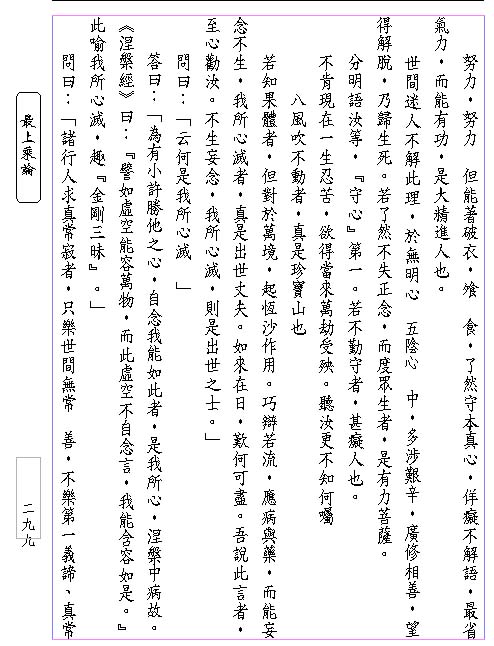 努力，努力　但能著破衣，飧　食，了然守本真心，佯癡不解語，最省
氣力，而能有功，是大精進人也。
世間迷人不解此理，於無明心　五陰心　中，多涉艱辛，廣修相善，望
得解脫，乃歸生死。若了然不失正念，而度眾生者，是有力菩薩。
分明語汝等，『守心』第一。若不勤守者，甚癡人也。
不肯現在一生忍苦，欲得當來萬劫受殃。聽汝更不知何囑
八風吹不動者，真是珍寶山也
若知果體者，但對於萬境，起恆沙作用。巧辯若流，應病與藥，而能妄
念不生，我所心滅者，真是出世丈夫。如來在日，歎何可盡。吾說此言者，
至心勸汝。不生妄念，我所心滅，則是出世之士。」
問曰：「云何是我所心滅　」
答曰：「為有小許勝他之心，自念我能如此者，是我所心，涅槃中病故。
《涅槃經》曰：『譬如虛空能容萬物，而此虛空不自念言，我能含容如是。』
此喻我所心滅，趣『金剛三昧』。」
問曰：「諸行人求真常寂者，只樂世間無常　善，不樂第一義諦、真常
最上乘論
二九九